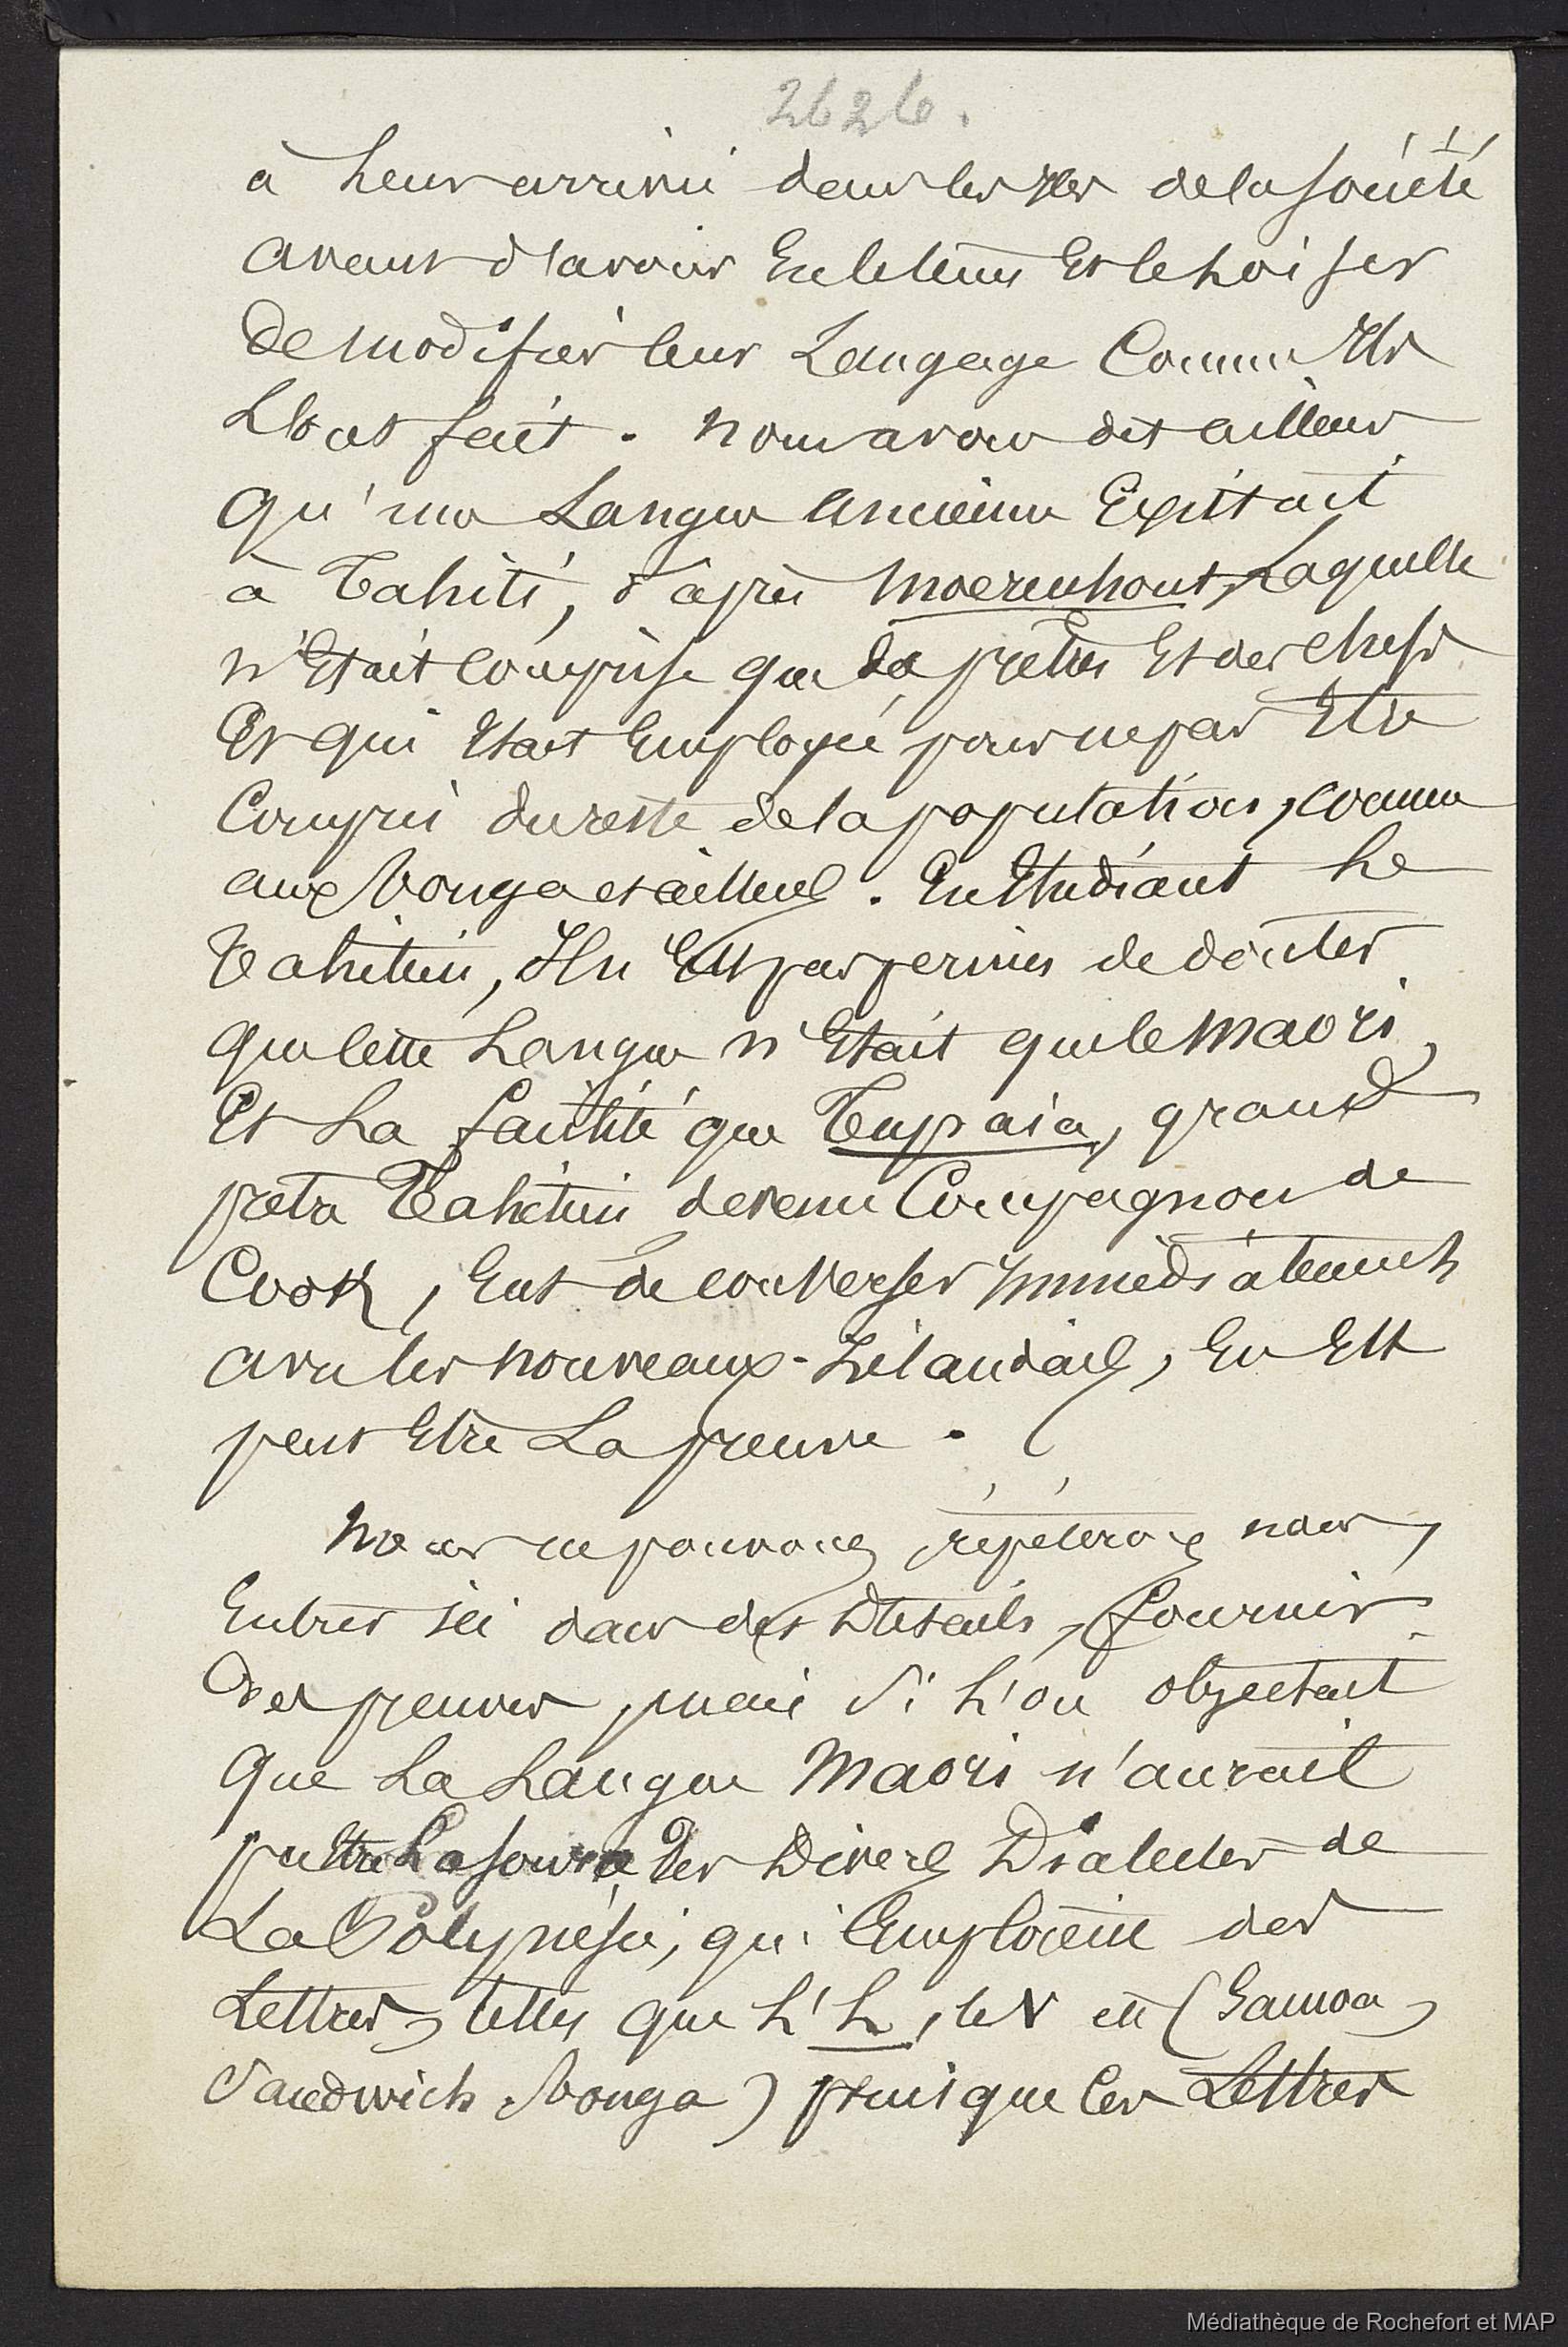 2626.
à leur arrivée dans les Iles de la Société
avant d'avoir eu le tems et le loisir
de modifier leur langage comme Ils
l'ont fait. nous avons dit ailleurs
qu'une langue ancienne Existait
à Tahiti, d'après Moerenhout, Laquelle
n'Etait comprise que des prêtres Et des chefs
Et qui Etait Employée pour ne pas Etre
Compris du reste de la population, comme
aux Tonga et ailleurs. En Etudiant le
Tahitien, Il n'Est pas permis de douter
que cette Langue n'Etait que le Maori,
Et La facilité que Tupaia, grand
prêtre Tahitien devenu Compagnon de
Cook, Eut de converser Immédiatement
avec les nouveaux-Zélandais, En Est
peut Etre La preuve.
Nous ne pouvons, répéterons nous,
Entrer ici dans des Détails, fournir
des preuves, mais si l'on objectait
que La Langue Maori n'aurait
pu Etre La source des Divers Dialectes de
La Polynésie, qui Emploient des
Lettres, telles que l'h, le V etc (Samoa,
Sandwich Tonga) puisque ces Lettres
Médiathèque de Rochefort et MAP